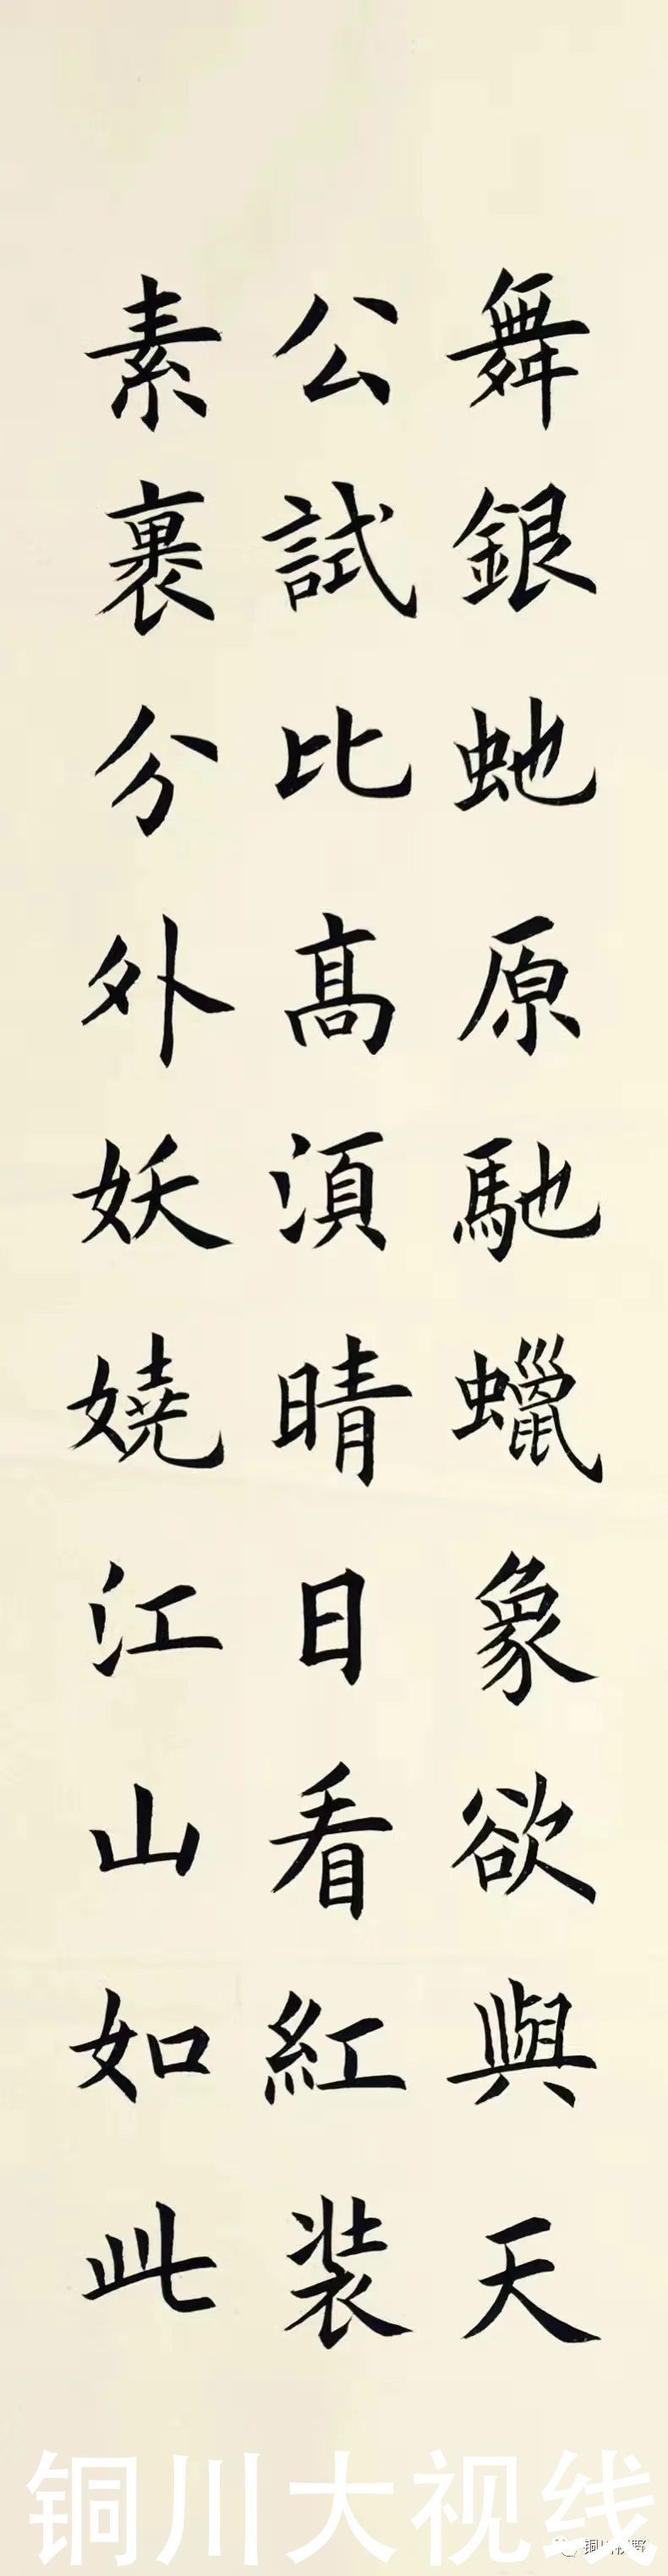 舞銀虵原馳蠟象欲與天
公試比髙湏晴日看紅装
素裹分外妖嬈江山如此
铜川大视线